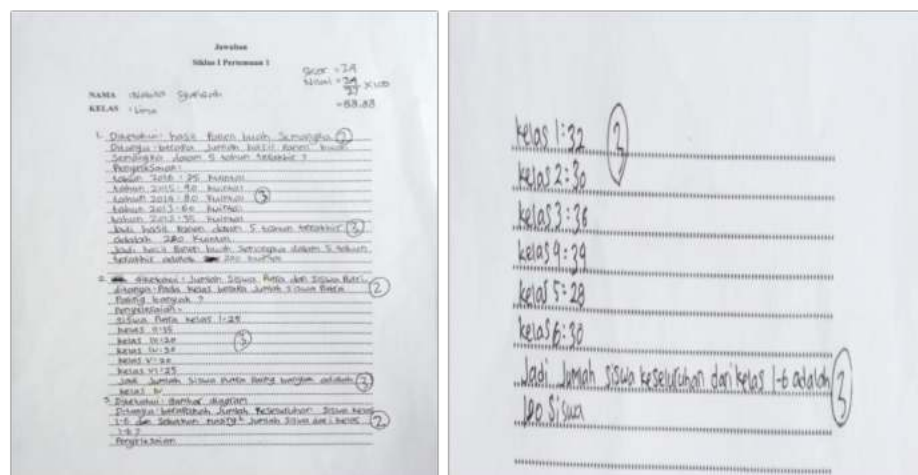 Jawaban
Siklus I Pertemuan 1
Skor = 24
Nilai = 24/27 x 100
= 88.88
NAMA :
KELAS : Lima
1. Diketahui: hasil Panen buah Semangka 2
Ditanya: berapa Jumlah hasil Panen buah
Semangka dalam 5 tahun terakhir ?
Penyelesaian:
tahun 2016 : 25 kuintal
tahun 2015: 90 kuintal
tahun 2014: 80 kuintal 3
tahun 2013: 60 kuintal
tahun 2012: 35 kuintal
Jadi hasil Panen dalam 5 tahun terakhir 3
adalah 290 kuintal
Jadi hasil Panen buah Semangka dalam 5 tahun
terakhir adalah kuintal
2. diketahui: Jumlah Siswa Putra dan Siswa Putri
ditanya: Pada kelas berapa Jumlah Siswa Putra 2
Paling banyak ?
Penyelesaian:
Siswa Putra kelas I: 25
kelas II: 15
kelas III: 20 3
kelas IV: 30
kelas V: 20
kelas VI: 25
Jadi Jumlah Siswa Putra Paling banyak adalah 3
kelas IV
3. Diketahui: Gambar diagram
Ditanya: berapakah Jumlah keseluruhan Siswa kelas
1-6 dan Sebutkan masing2 Jumlah Siswa dari kelas 2
1-6 ?
Penyelesaian
kelas 1: 32 2
kelas 2: 30
kelas 3: 36
kelas 4: 34
kelas 5: 28
kelas 6: 30
Jadi Jumlah siswa keseluruhan dari kelas 1-6 adalah 2
190 Siswa